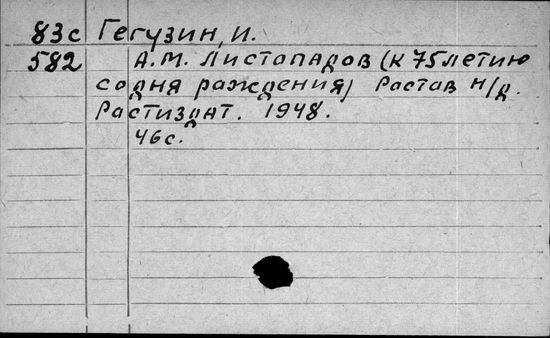 83с Гегузин, И.
582 А.М. Листопадов (к 75летию
со дня рождения) Ростов н/д.
Ростиздат. 1948.
46с.